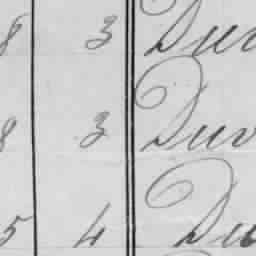 8 3 Duv
8 3 Duv
5 4 Du